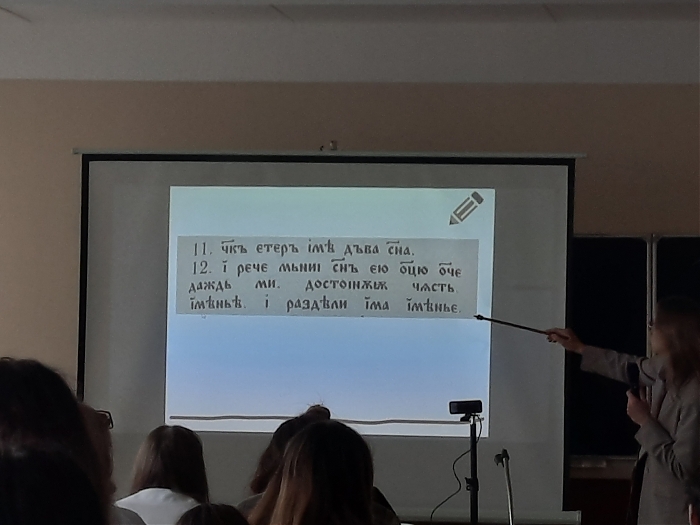 11. ч҃къ етеръ імѣ дъва с҃на.
12. ї рече мьниі с҃нъ ею о҃цю о҃че
даждь ми. достоінѫѭ чѧсть.
їмѣньѣ. і раздѣли їма їмѣнье.